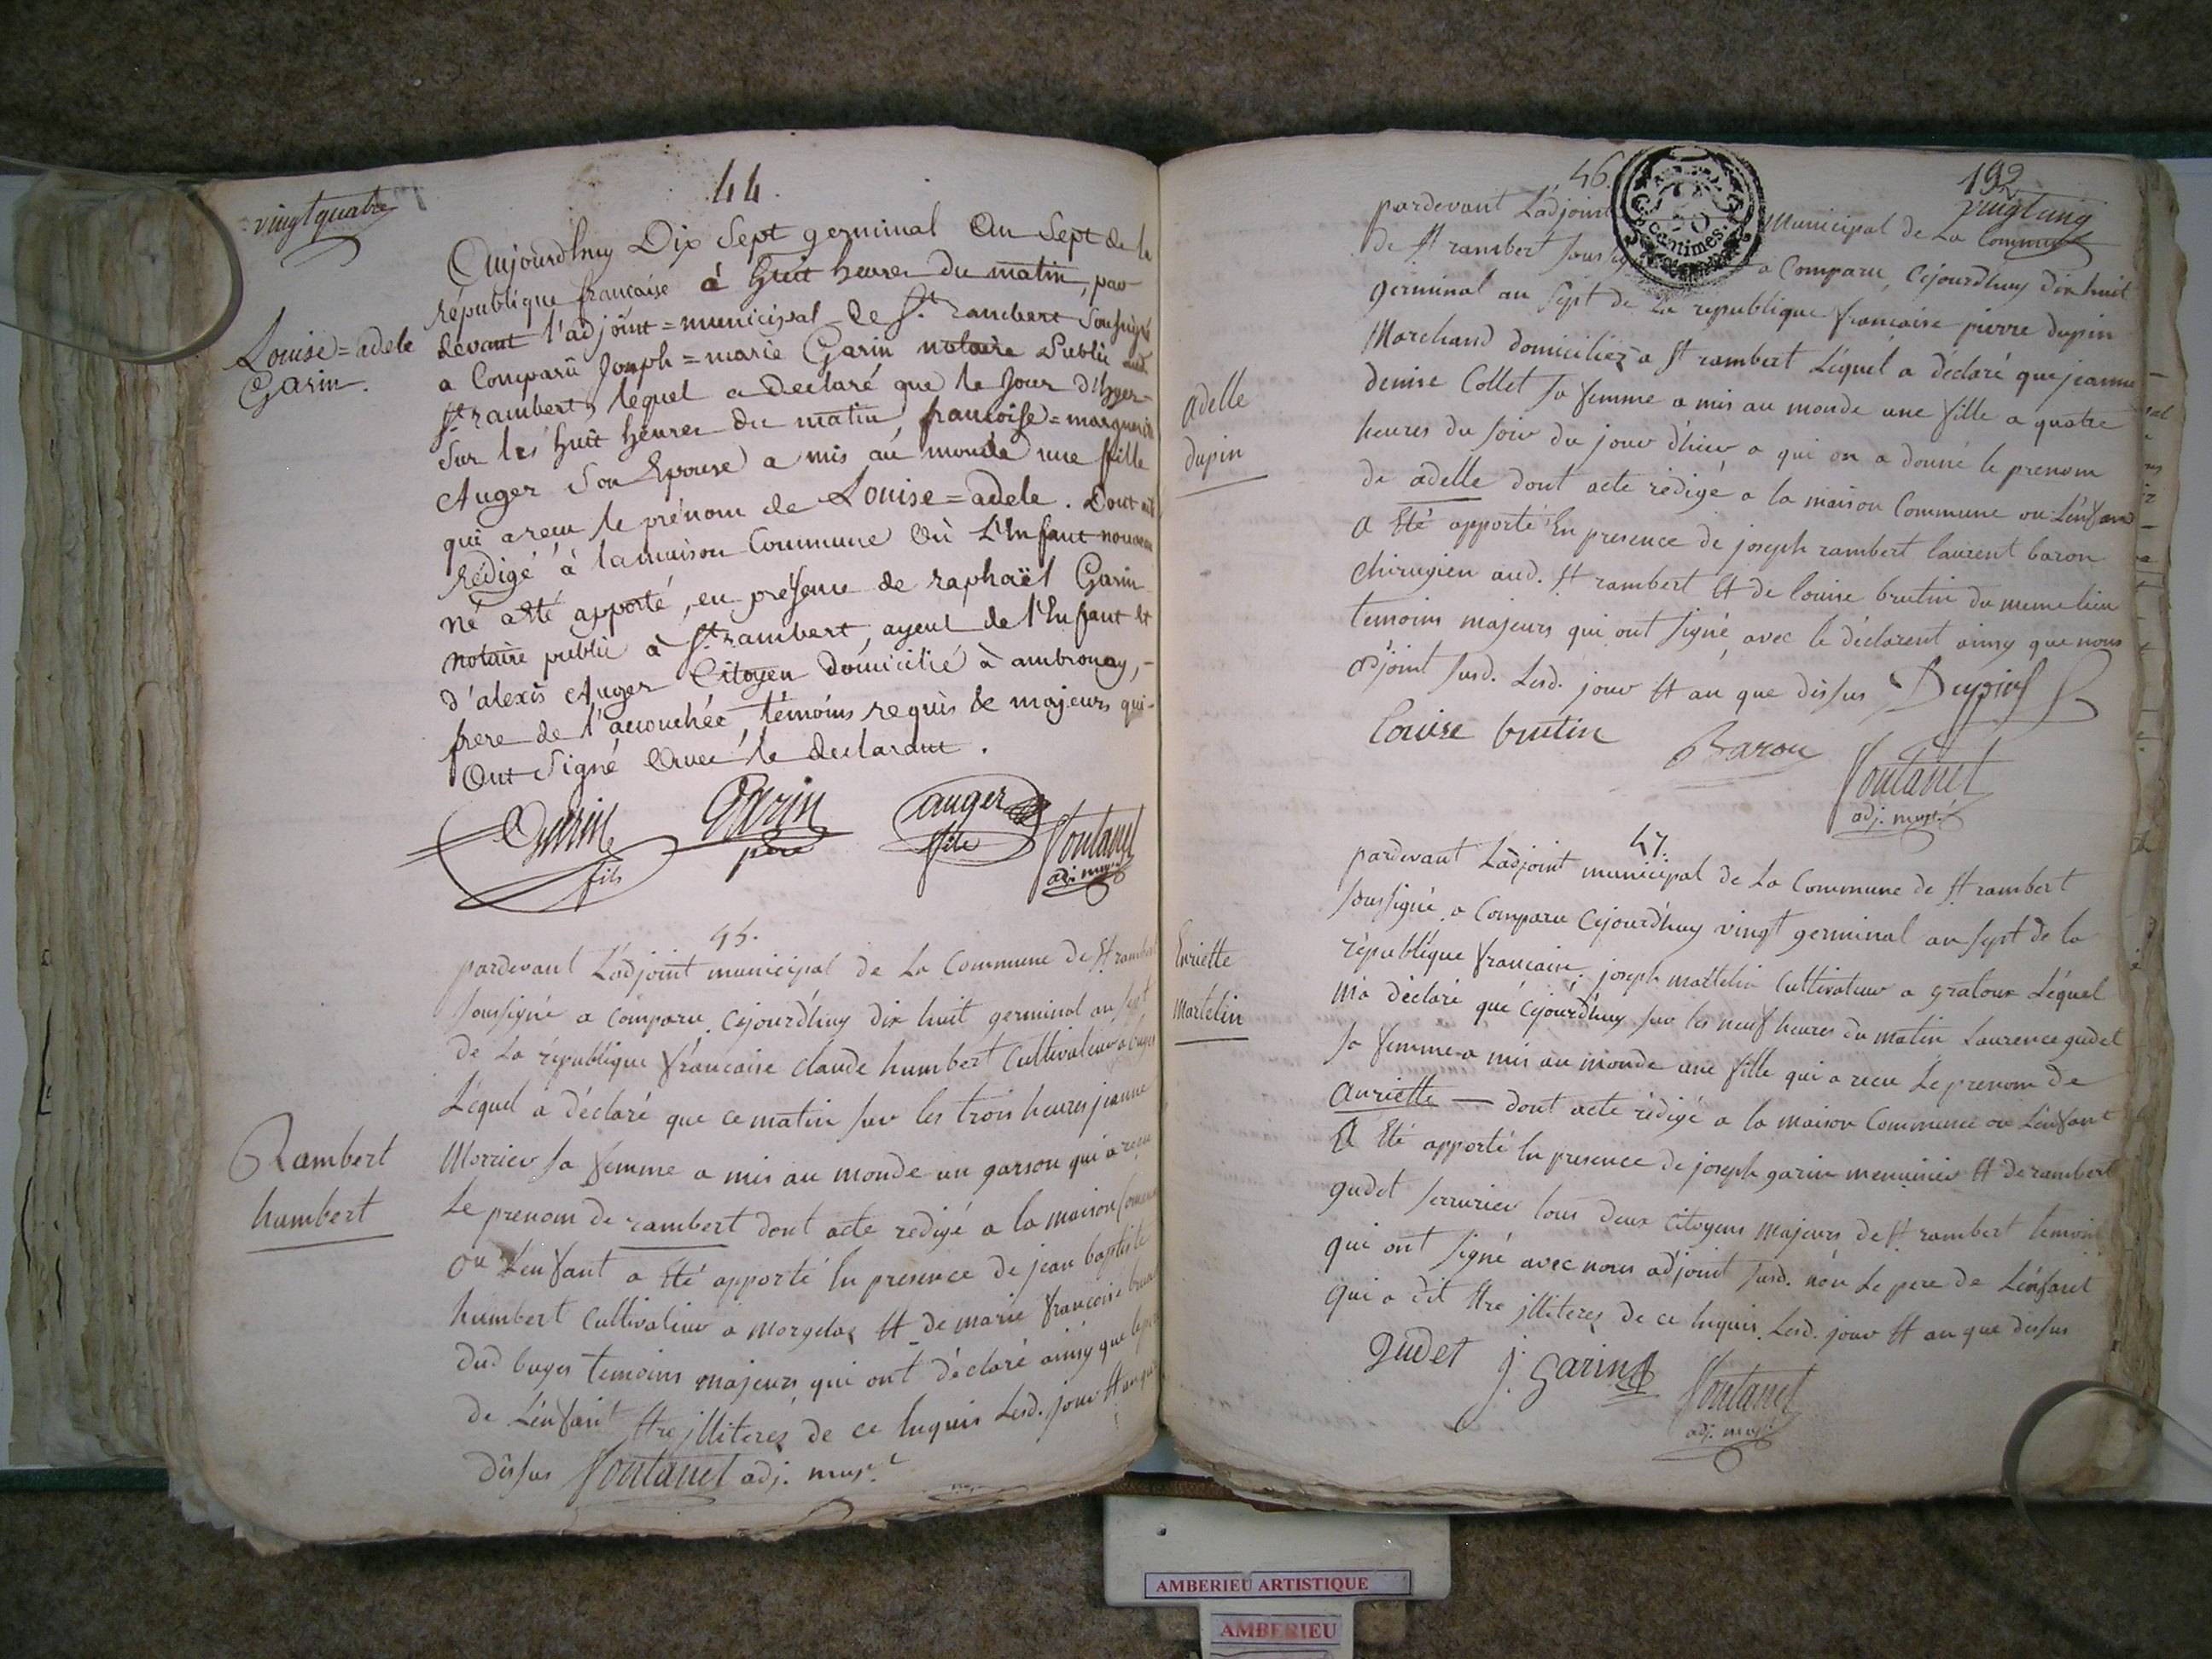 vingtquatre
44.
Aujourdhuy Dix Sept germinal An Sept de la
république francaise à huit heures du matin, par-
devant l'adjoint=municipal de St. rambert Soussigné
a Comparû Joseph=marie Garin notaire Public aud.
St. rambert, lequel a declaré que le Jour d'hyer
Sur les huit heures du matin, francoise=marguerite
Auger Son Epouse a mis au monde une fille
qui a recu le prénom de Louise=adele. Dont acte
Rédigé à la maison Commune Où L'Enfant nouveau
né a été apporté, en présence de raphaël Garin
notaire public à St. rambert, ayeul de l'Enfant et
d'alexis Auger Citoyen Domicilié à ambronay,
frere de l'accouchée, témoins requis & majeurs qui
Ont Signé Avec le declarant.
Louise=adele
Garin.
Garin fils
Garin père
auger fils
fontanel
adj. mupl.
45.
pardevant L'adjoint municipal de La Commune de St rambert
soussigné a comparu Cejourdhuy dix huit germinal an sept
de La république francaise claude humbert Cultivateur a buges
Léquel a déclaré que ce matin sur les trois heures jeanne
Morrier sa femme a mis au monde un garson qui a recu
Le prenom de rambert dont acte redigé a la maison Commune
ou L'enfant a Eté apporté En presence de jean baptiste
humbert Cultivateur a morgelas Et de marie francoise
dud buges temoins majeurs qui ont déclaré ainsy que le pere
de L'enfant Etre illiterés de ce Enquis Lesd. jour Et an que
dessus fontanel adj. mupl.
Rambert
humbert
46.
192
vingtcinq
pardevant L'adjoint Municipal de La Commune
de St rambert soussigné a Comparu, Cejourdhuy dix huit
germinal an sept de La republique francaise pierre dupin
Marchand domicilier a St rambert Léquel a déclaré que jeanne
denise Collet sa femme a mis au monde une fille a quatre
heures du soir du jour d'hier a qui on a donné le prenom
de adelle dont acte redigé a la maison Commune ou L'enfant
a Eté apporté En presence de joseph rambert laurent baron
chirugien aud. St rambert Et de louise brutin du meme lieu
temoins majeurs qui ont signé avec le déclarent ainsy que nous
adjoint susd. Lesd. jour Et an que dessus Dupin
louise brutin
Baron
fontanel
adj. mupl.
adelle
dupin
47.
pardevant L'adjoint municipal de La Commune de St rambert
soussigné a Comparu Cejourdhuy vingt germinal an sept de la
république francaise joseph martelin Cultivateur a gratoux Léquel
m'a déclaré que cejourdhuy sur les neuf heures du matin Laurence gudet
sa femme a mis au monde une fille qui a recu Le prenom de
anriette — dont acte rédigé a la maison Commune ou L'enfant
a Eté apporté En presence de joseph garin menuisier Et de rambert
gudet serrurier tous deux Citoyens majeurs de St rambert temoins
qui ont signé avec nous adjoint susd. non Le pere de L'enfant
qui a dit Etre illiterez de ce Enquis. Lesd. jour Et an que dessus
Enriette
martelin
Gudet
j. Garin
fontanel
adj. mupl.
50
centimes.
AMBERIEU ARTISTIQUE
AMBERIEU